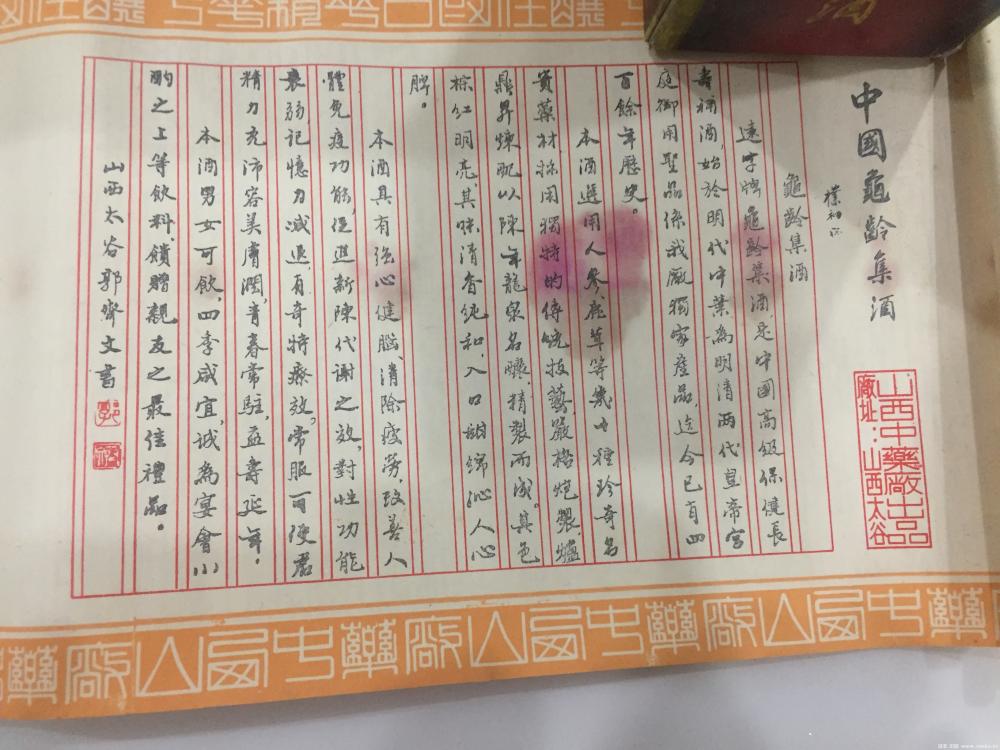 中國龜齡集酒
樸初題
山西中藥廠出品
廠址：山西太谷
龜齡集酒
遠字牌龜齡集酒，是中國高級保健長
壽補酒，始於明代中葉為明清兩代皇帝宮
庭御用聖品係我廠獨家産品，迄今已有四
百餘年歷史。
本酒選用人參、鹿茸等幾十種珍奇名
貴藥材，採用獨特的傳統技藝，嚴格炮製，爐
鼎昇煉配以陳年龍泉名釀，精製而成。其色
棕紅明亮，其味清香純和，入口甜綿沁人心
脾。
本酒具有強心健腦、消除疲勞，改善人
體免疫功能，促進新陳代谢之效，對性功能
衰弱，記憶力減退，有奇特療效，常服可使君
精力充沛容美膚潤，青春常駐，益壽延年。
本酒男女可飲，四季咸宜，誠為宴會小
酌之上等飲料，饋贈親友之最佳禮品。
山西太谷郭齊文書
藥廠山西中藥廠山西中藥廠山西中藥